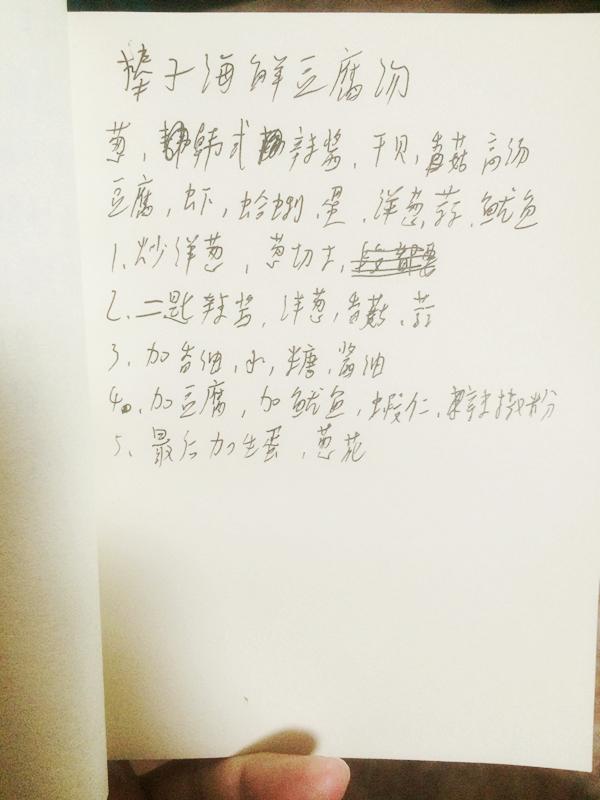 棒子海鲜豆腐汤
葱，韩式辣酱，干贝，香菇高汤
豆腐，虾，蛤蜊，蛋，洋葱，蒜，鱿鱼
1、炒洋葱，葱切
2、二匙辣酱，洋葱，香菇，蒜
3、加香油，水，糖，酱油
4、加豆腐，加鱿鱼，虾仁、辣椒粉
5、最后加生蛋，葱花